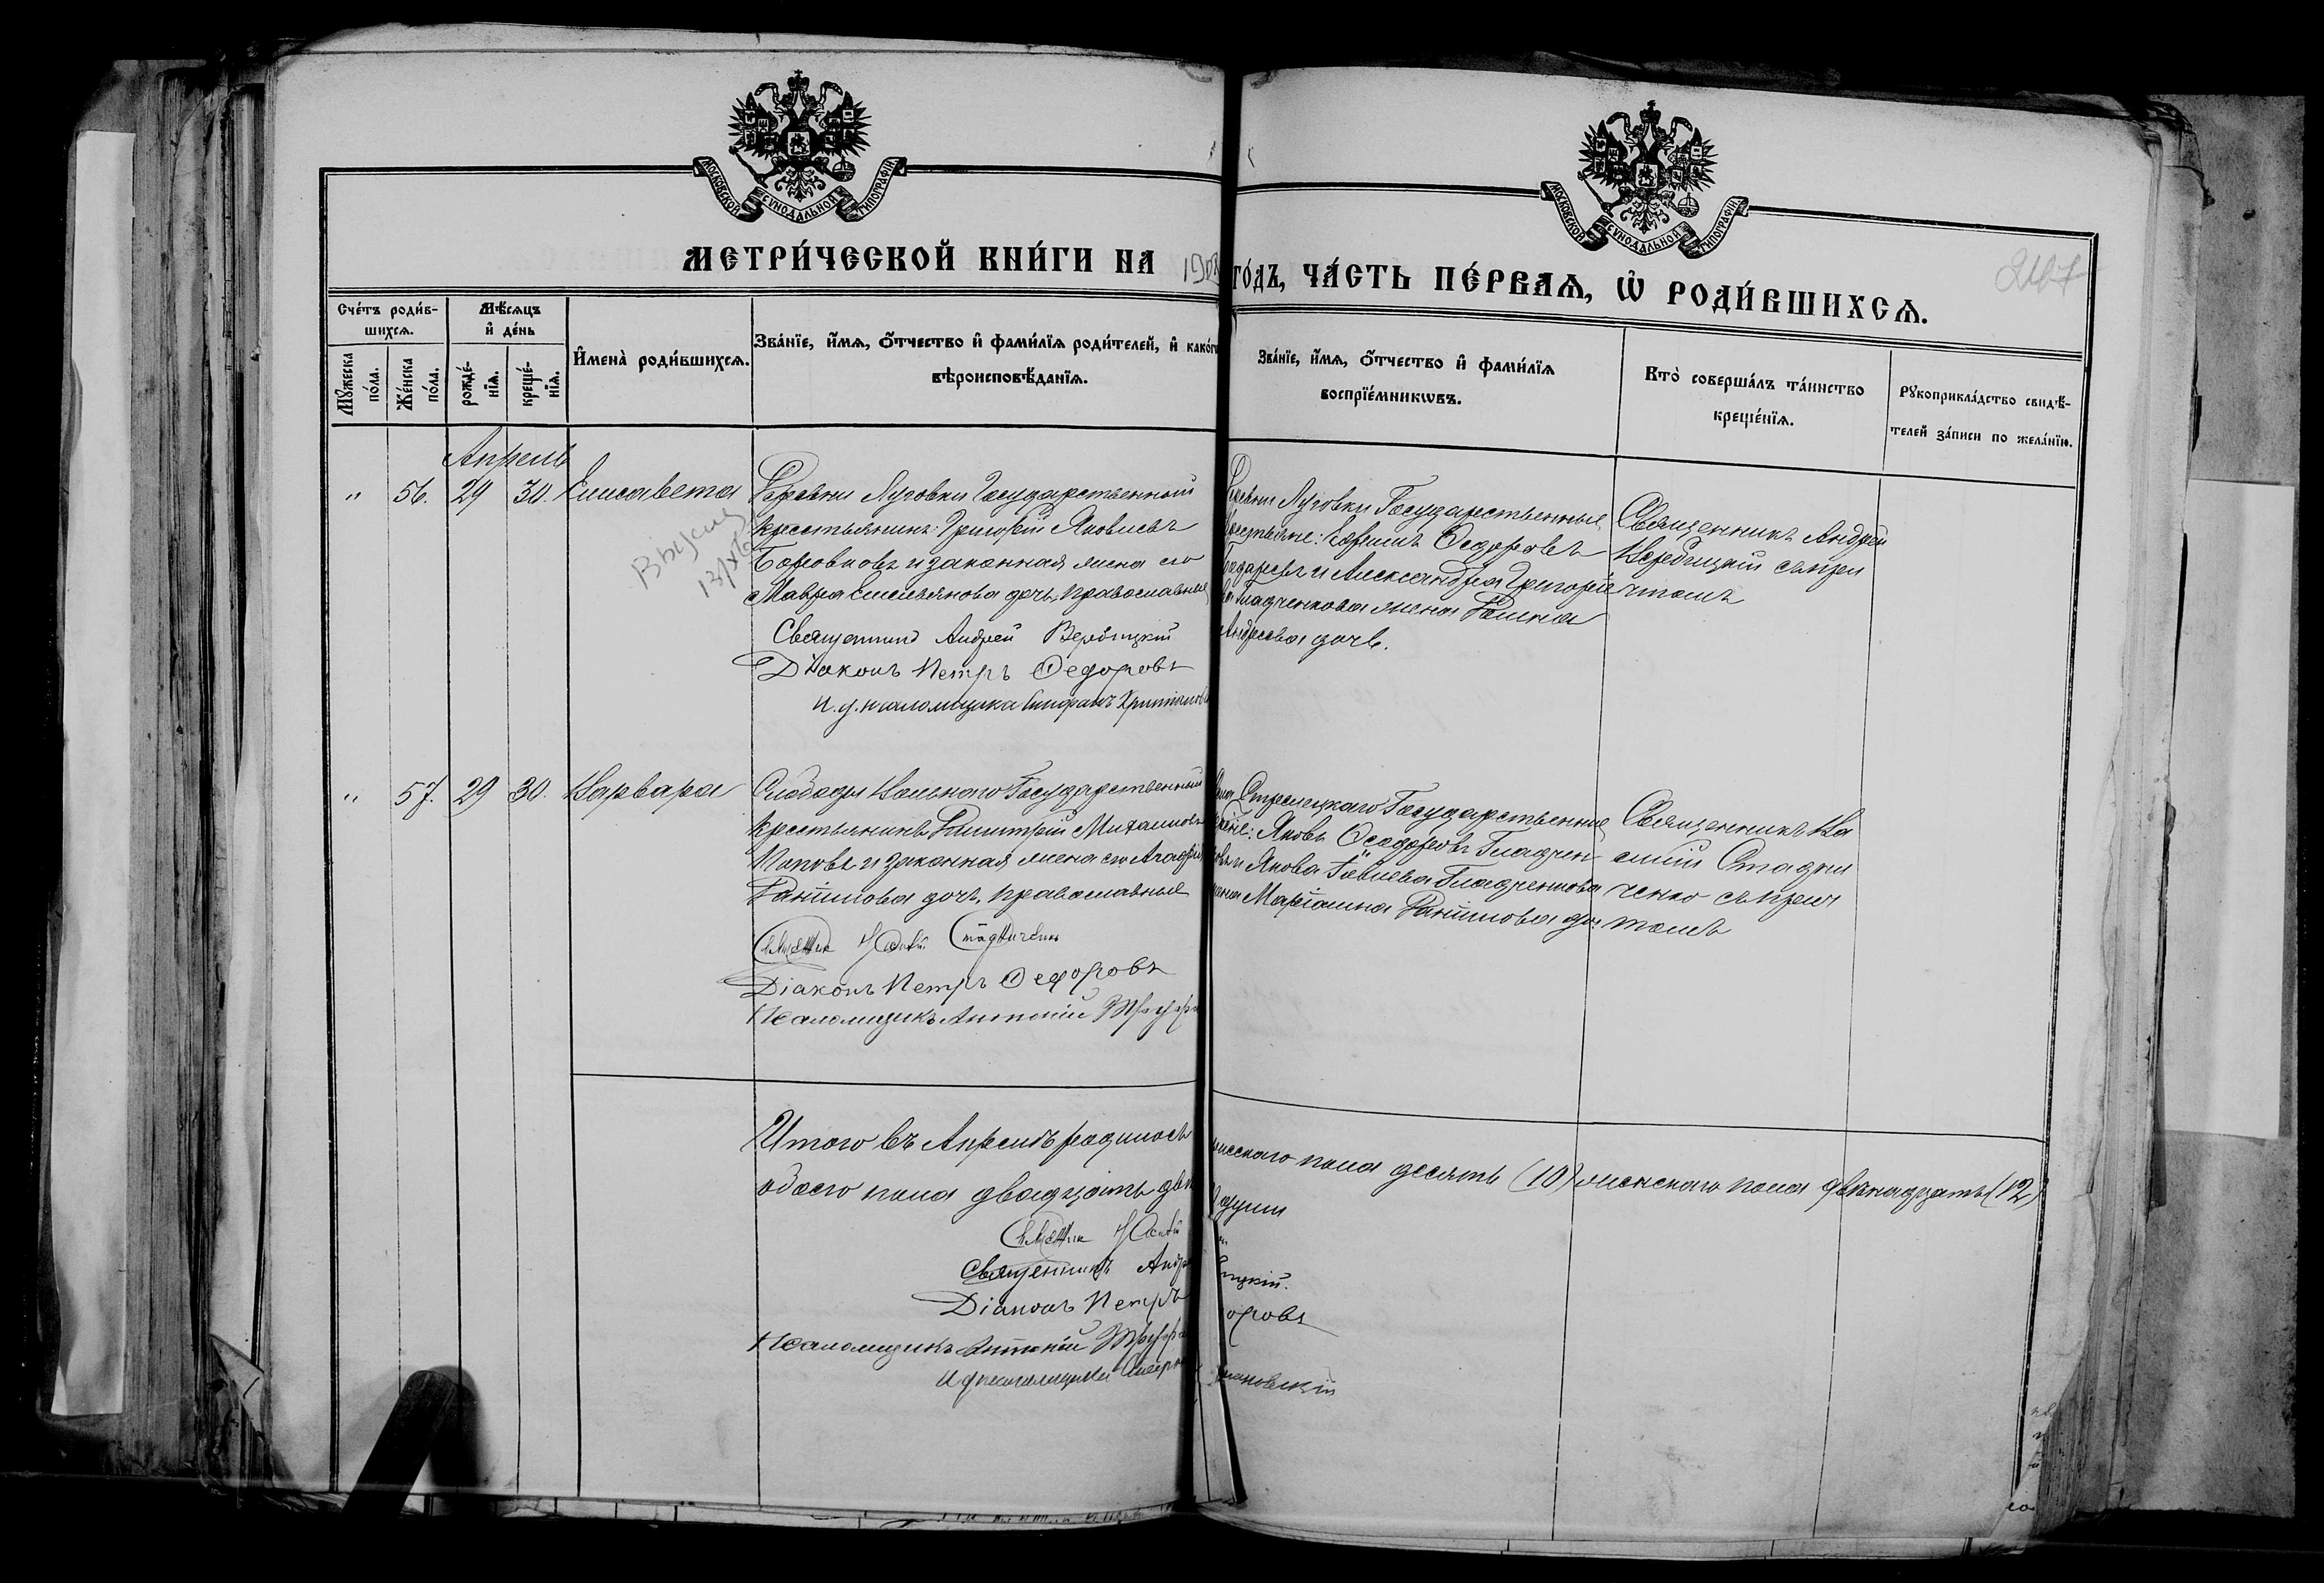 МОСКОВСКОЙ СѴНОДАЛЬНОЙ ТИПОГРАФІИ
МОСКОВСКОЙ СѴНОДАЛЬНОЙ ТИПОГРАФІИ
МЕТРИ́ЧЕСКОЙ КНИ́ГИ НА 1908
ГО́ДЪ, ЧА́СТЬ ПЕ́РВАѦ, Ѡ РОДИ́ВШИХСѦ.
Сче́тъ роди́в-
шихсѧ.
Мꙋ́жеска
по́ла.
Же́нска
по́ла.
Мѣ́сѧцъ
и҆ де́нь
рожде́-
нїѧ.
креще́-
нїѧ.
И҆мена̀ роди́вшихсѧ.
Зва́нїе, и҆́мѧ, ѻ҆́тчество и҆ фами́лїѧ роди́телей, и҆ како́гѡ
вѣроисповѣ́данїѧ.
Зва́нїе, и҆́мѧ, ѻ҆́тчество и҆ фами́лїѧ
воспрїе́мникѡвъ.
Кто̀ соверша́лъ та́инство
креще́нїѧ.
Рꙋкоприкла́дство свидѣ́-
телей за́писи по жела́нїю.
Апрель
" 56. 29 30. Елисавета
Деревни Луговки Государственный
крестьянинъ: Григорій Яковлевъ
и законная жена его
Мавра Емельянова дочь, православные
Священникъ Андрей Вербицкій
Діаконъ Петръ Ѳедоровъ
и. д. псаломщика
Деревни Луговки Государственные
крестьяне: Ефимъ Ѳедоровъ
и Александра Григоріе
ва Гладченкова жена
Андреева дочь.
Священникъ Андрей
Вербицкій съ при
чтомъ
" 57. 29 30. Варвара
Слободы Вольнаго Государственный
крестьянинъ Димитрій Михаиловъ
Поповъ и законная жена его
Даніилова дочь, православные
Діаконъ Петръ Ѳедоровъ
Псаломщикъ Антоній
села Стрелецкаго Государственные
Яковъ Ѳеодоровъ Гладчен
ковъ и Якова Гладченкова
жена Маріамна Даніилова до:
Священникъ Ва
силій Стадни
ченко съ прич
томъ
Итого въ Апрелѣ родилось
мужескаго пола десять (10) женскаго пола двѣнадцать (12)
обоего пола двадцать две
души
Священникъ Андрей
Вербицкій.
Діаконъ Петръ
Ѳедоровъ
Псаломщикъ Антоній